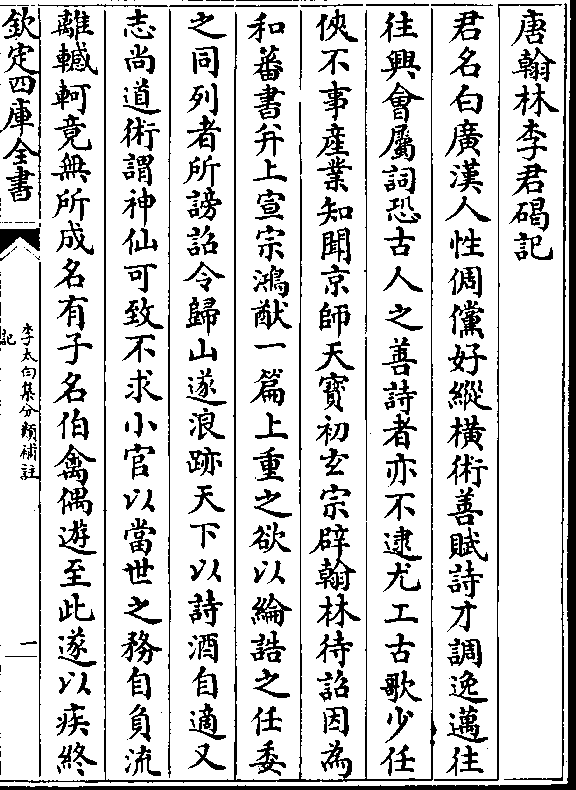 唐翰林李君碣記
君名白廣漢人性倜儻好縱橫術善賦詩才調逸邁往
往興會屬詞恐古人之善詩者亦不逮尤工古歌少任
俠不事産業知聞京師天寳初玄宗辟翰林待詔因為
和蕃書并上宣宗鴻猷一篇上重之欲以綸誥之任委
之同列者所謗詔令歸山遂浪跡天下以詩酒自適又
志尚道術謂神仙可致不求小官以當世之務自負流
離轗軻竟無所成名有子名伯禽偶遊至此遂以疾終
欽定四庫全書
李太白集分類補註
記
一